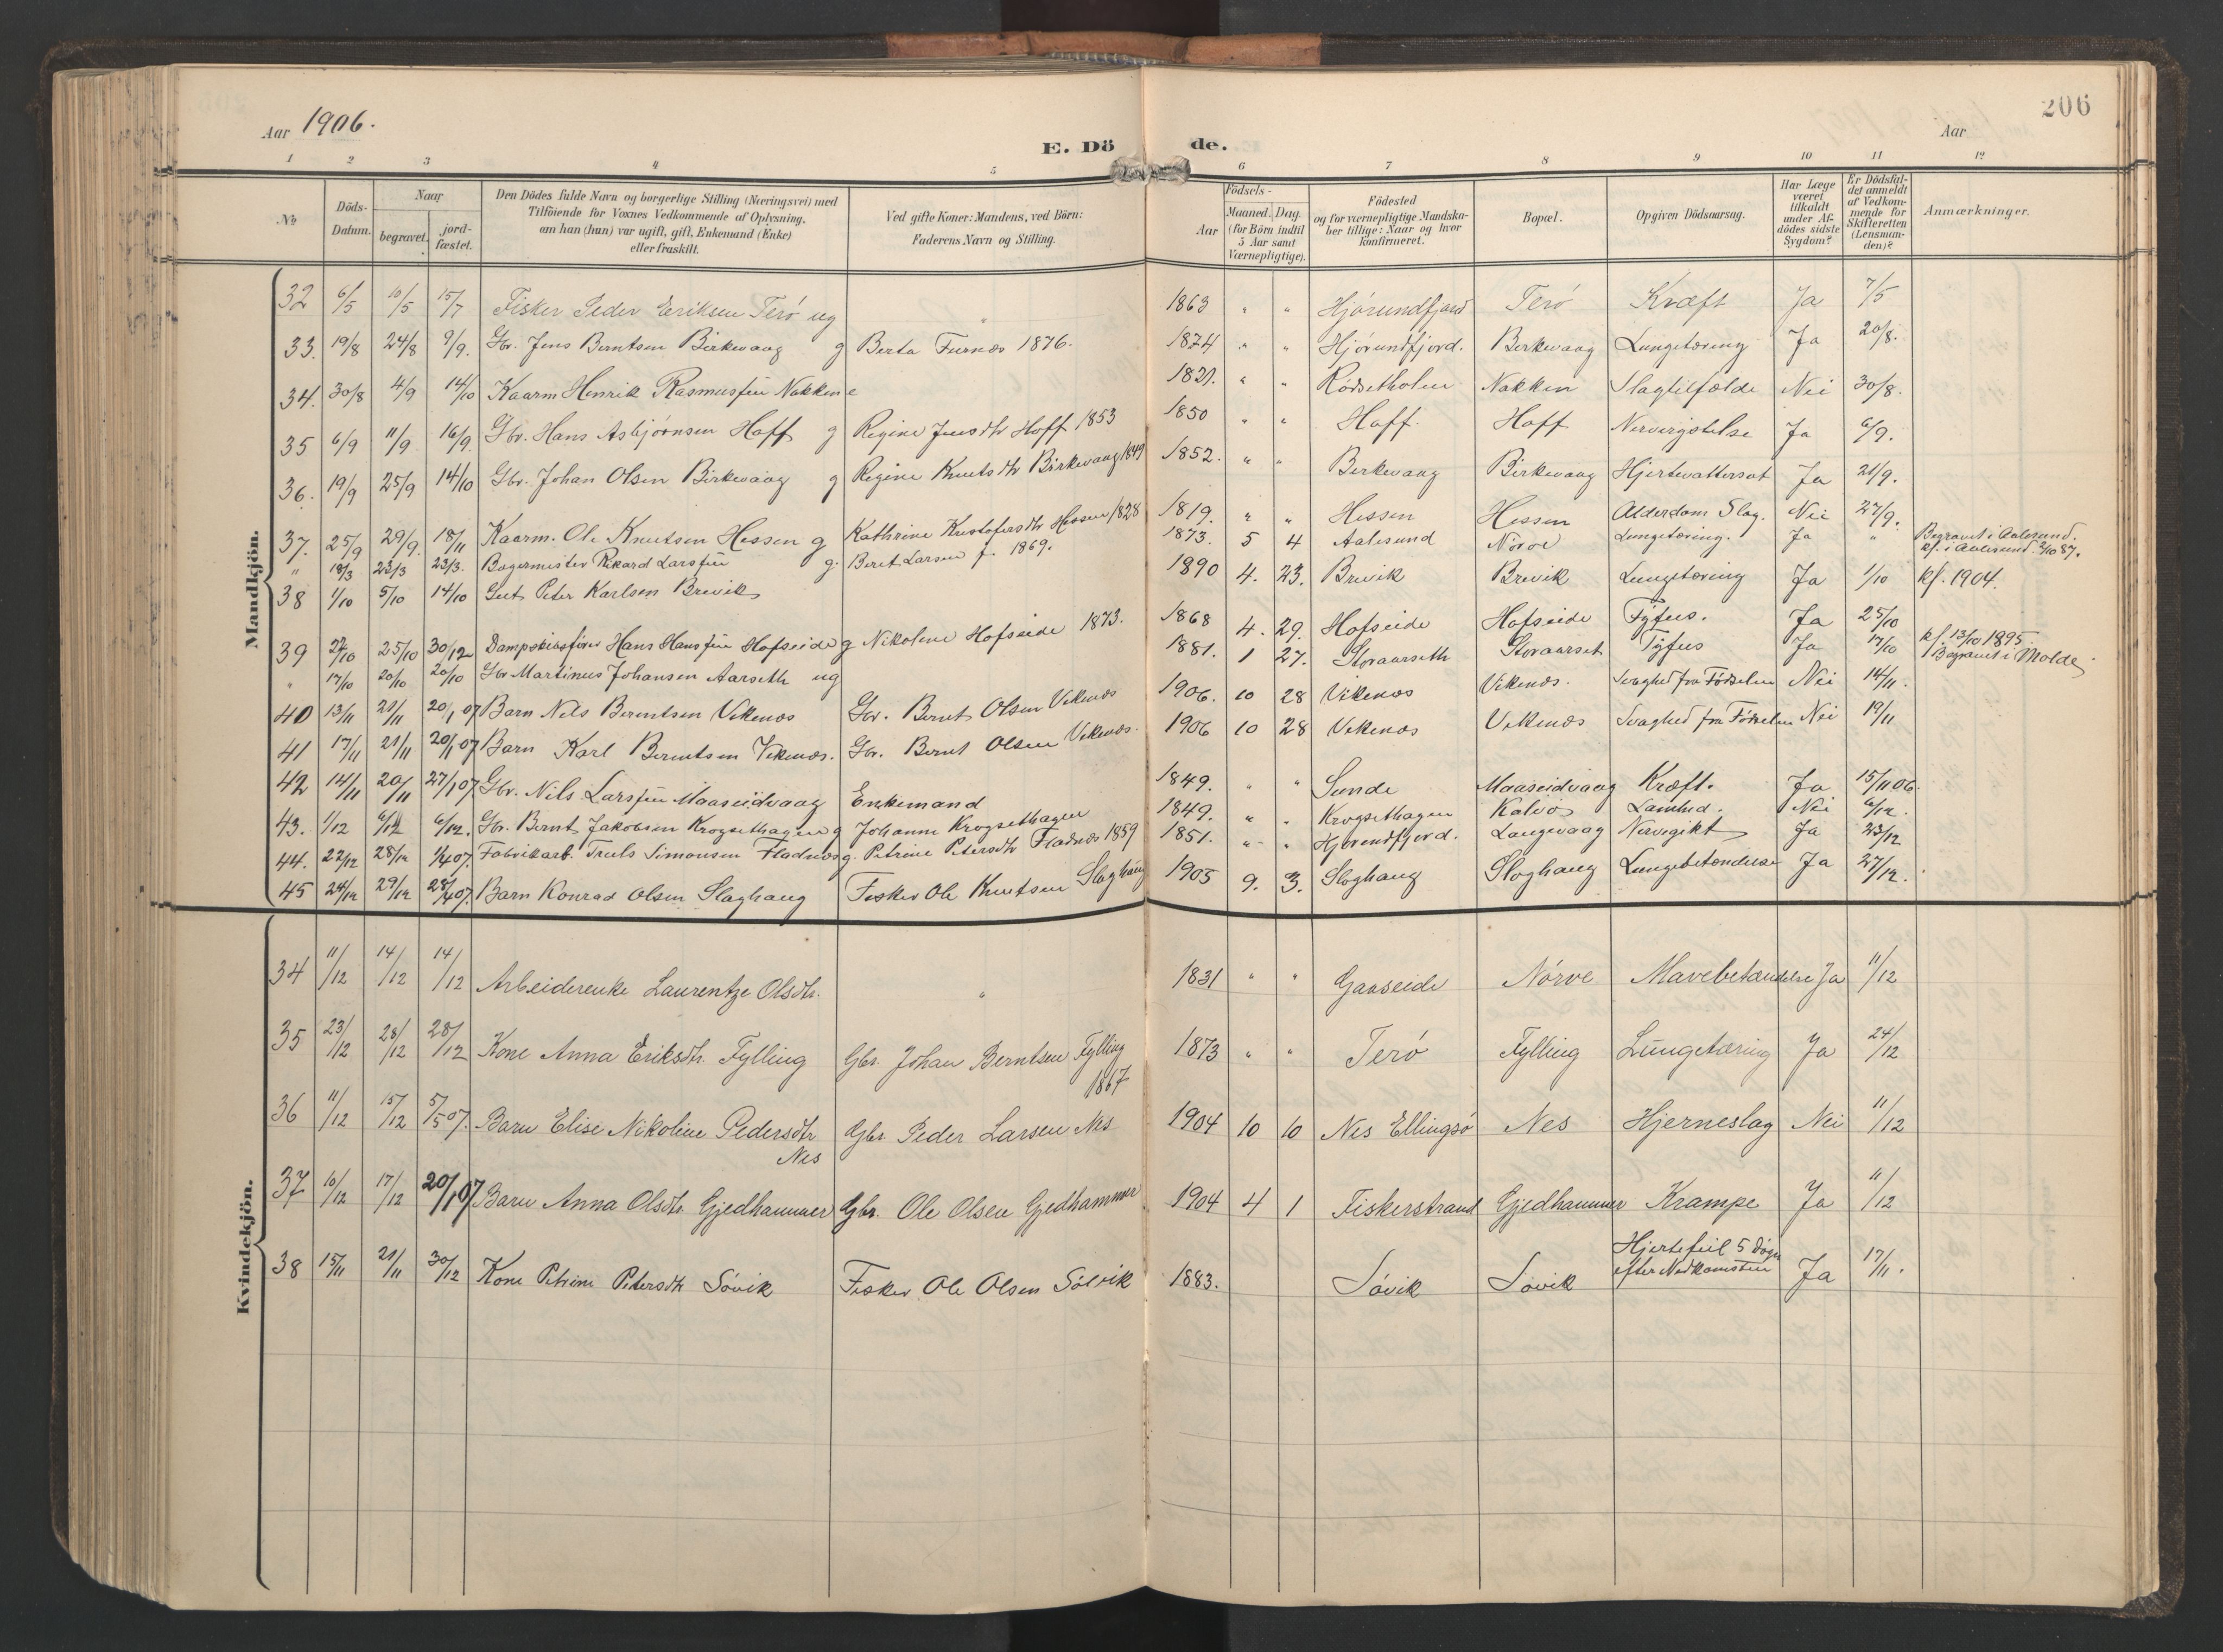 206
Aar 1906.
E. Dö de.
Aar
1 2 3 4 5 6 7 8 9 10 11 12
№
Döds-Datum.
Naar
begravet.
jord-fæstet.
Den Dödes fulde Navn og borgerlige Stilling (Næringsvei) med
Tilföiende for Voxnes Vedkommende af Oplysning,
om han (hun) var ugift, gift, Enkemand (Enke)
eller fraskilt.
Ved gifte Koner: Mandens, ved Börn:
Faderens Navn og Stilling.
Födsels-
Aar
Maaned. Dag.
(for Börn indtil
5 Aar samt
Værnepligtige).
Födested
og for værnepligtige Mandska-
ber tillige: Naar og hvor
konfirmeret.
Bopæl.
Opgiven Dödsaarsag.
Har Læge
været
tilkaldt
under Af-
dödes sidste
Sygdom?
Er Dödsfal-
det anmeldt
af Vedkom-
mende for
Skifteretten
(Lensman-
den)?
Anmærkninger.
Mandkjön.
32 6/5 10/5 15/7 Fisker Peder Eriksen Terö ug " 1863 " " Hjörundfjord Terö Kræft Ja 7/5
33. 19/8 24/8 9/9. Gbr. Jens Berntsen Birkevaag g Berta Furnes 1876. 1874 " " Hjörundfjord. Berkevaag Lungetæring Ja 20/8.
34. 30/8 4/9 14/10 Kaarm Henrik Rasmussen Nakken e 1821. " " Rödsetholen Nakken Slagtilfælde Nei 30/8.
35 6/9 11/9 16/9 Gbr. Hans Asbjörnsen Hoff g Regine Jensdtr Hoff 1853 1850 " " Hoff. Hoff Nervrigstelse Ja 6/9.
36. 19/9 25/9 14/10 Gbr. Johan Olsen Birkevaag g Regine Knutsdtr Birkevaag 1849 1852. " " Berkevaag Birkevaag Hjertevattersot Ja 21/9.
37. 25/9 29/9. 18/11 Kaarm. Ole Knutsen Hessen g Kathrine Kristofersdtr Hessen 1828 1819. " " Hessen Hessen Alderdom Slag. Nei 27/9.
" 18/3 23/3 23/3. Bagermester Rikard Larssen g. Berit Larsen f. 1869. 1873. 5 4 Aalesund Nörve Lungetæring. Ja " Begravet i Aalesund.
kf. i Aalesund 2/10 87.
38 1/10 5/10 14/10 Gut Peter Karlsen Brevik 1890 4. 23. Brevik Brevik Lungetæring Ja 1/10 kf. 1904.
39 22/10 25/10 30/12 Dampskibsförer Hans Hanssen Hofseide g Nikoline Hofseide 1873. 1868 4. 29. Hofseide Hofseide Tyfus. Ja 25/10
" 17/10 20/10 20/10 Gbr Martinus Johansen Aarseth ug 1881. 1 27. Storaarseth Storaarset Tyfus Ja 17/10 kf. 13/10 1895.
Begravet i Molde
40 13/11 21/11 20/1 07 Barn Nils Berntsen Vekenes Gbr. Bernt Olsen Vekenes 1906. 10 28 Vikenes Vekenes. Svaghed fra Födselen Nei 14/11.
41 17/11 21/11 20/1 07 Barn Karl Berntsen Vekenes. Gbr. Bernt Olsen Vekenes. 1906 10 28 Vekenes Vekenes Svaghed fra Födselen Nei 19/11
42 14/11 20/11 27/1 07. Gbr. Nils Larssen Maaseidvaag Enkemand 1849. " " Sunde Maaseidvaag Kræft. Ja 15/11 06.
43. 1/12 6/12 6/12. Gbr. Bernt Jakobsen Krogsethagen g Johanne Krogsethagen 1849. " " Krogsethagen Kalvö Lamhed. Nei 6/12.
44. 22/12 28/12 1/4 07. Fabrikarb. Truls Simonsen Fladnes g. Petrine Petersdtr Fladnes 1859 1851. " " Hjörendfjord. Langevaag Nervegikt Ja 23/12
45 24/12 29/12 28/4 07. Barn Konrad Olsen Slaghaug Fisker Ole Knutsen Sloghaug 1905 9. 3. Sloghaug Sloghaug Lungebetændelse Ja 27/12.
Kvindekjön.
34 11/12 14/12 14/12 Arbeiderenke Laurentze Olsdtr. " 1831 " " Gaaseide Nörve Mavebetændelse Ja 11/12
35 23/12 28/12 28/12 Kone Anna Eriksdtr. Fylling Gbr. Johan Berntsen Fylling
1867 1873 " " Terö Fylling Lungetæring Ja 24/12
36 11/12 15/12 5/5 07. Barn Elise Nikoline Pedersdtr
Nes Gbr. Peder Larsen Nes 1904 10 10 Nes Ellingsö Nes Hjerneslag Nei 11/12
37 10/12 17/12 20/1 07 Barn Anna Olsdtr. Gjedhammer Gbr. Ole Olsen Gjedhammer 1904 4 1 Fiskerstrand Gjedhammer Krampe Ja 11/12
38 15/11 21/11 30/12 Kone Petrine Petersdtr Sövik Fisker Ole Olsen Sölvik 1883. Sövik Sövik Hjertefeil 5 Dögn
efter Nedkomsten Ja 17/11.